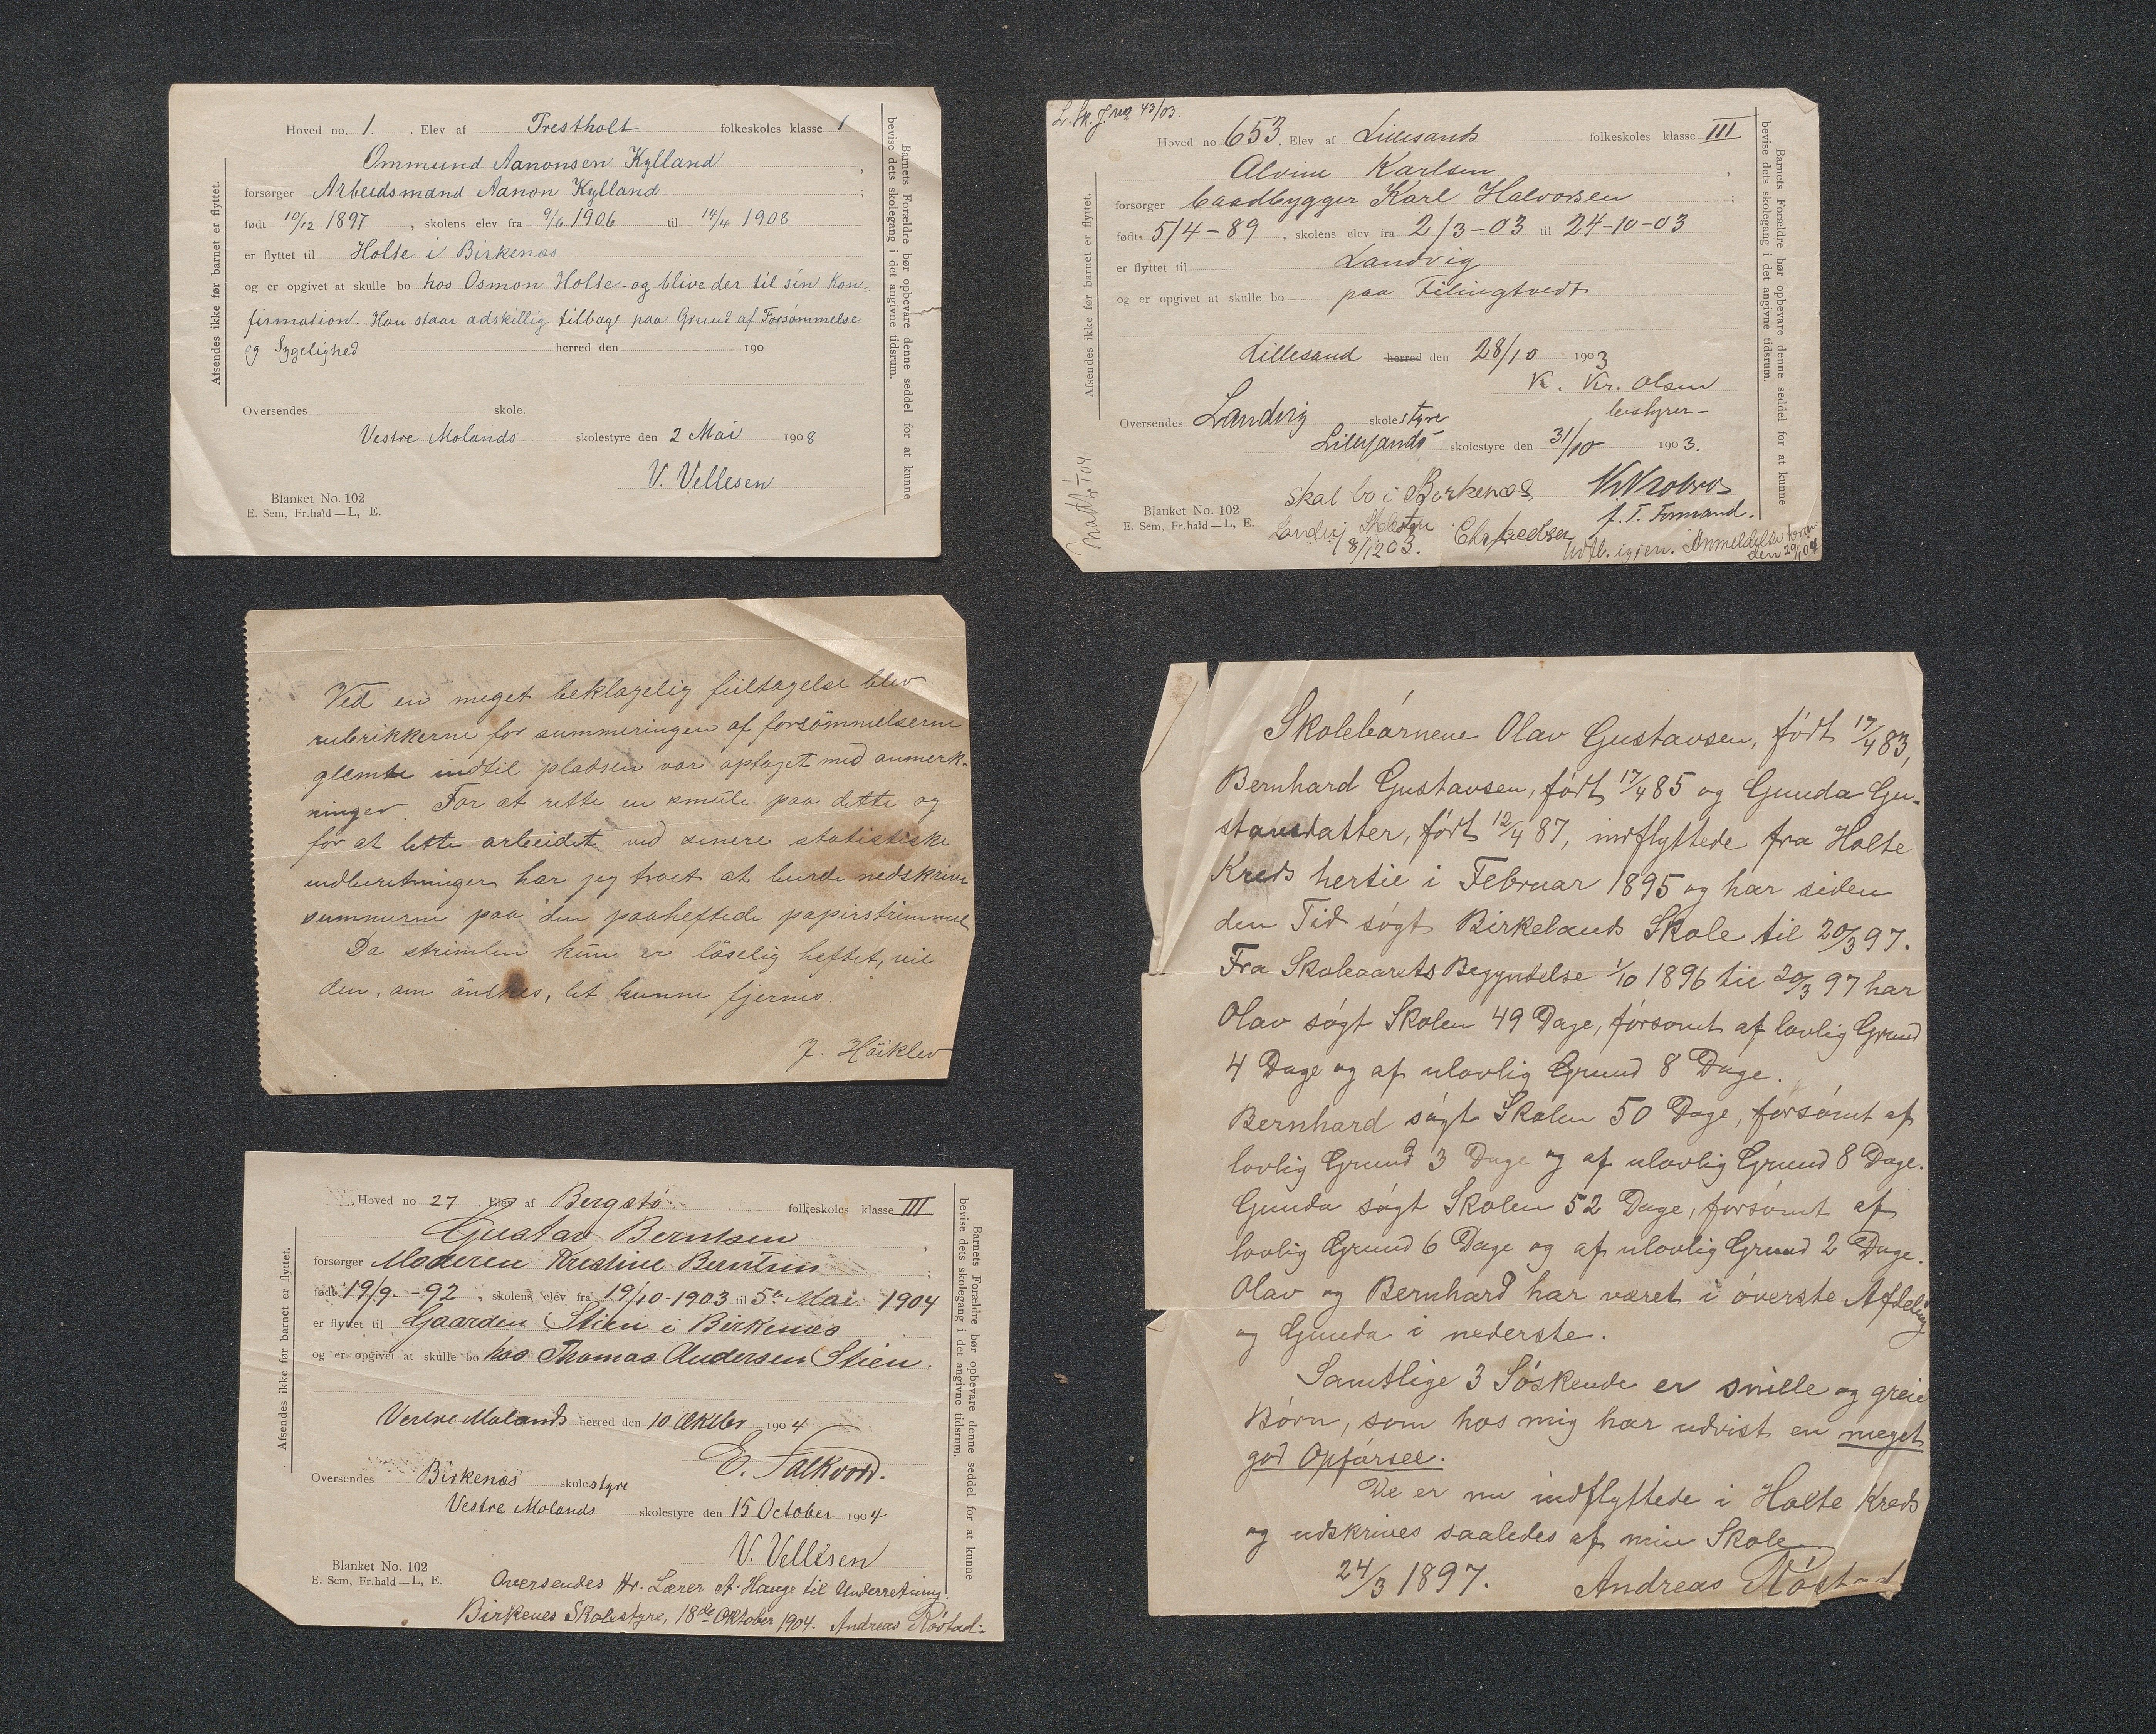 Hoved no. 1. Elev af Trestholt folkeskoles klasse 1
Ommund Aanonsen Kylland,
forsørger Arbeidsmand Aanon Kylland;
født 10/12 1897, skolens elev fra 9/6 1906 til 14/4 1908
er flyttet til Holte i Birkenæs
og er opgivet at skulle bo hos Osmon Holte - og blive der til sin Kon-
firmation. Han staar adskillig tilbage paa Grund af Forsømmelse
og Sygelighed herred den 190
Oversendes skole.
Vestre Molands skolestyre den 2 Mai 1908
V. Vellesen
Blanket No. 102
E. Sem, Fr.hald — L, E.
Afsendes ikke før barnet er flyttet.
Barnets Forældre bør opbevare denne seddel for at kunne
bevise dets skolegang i det angivne tidsrum.
L. Sk. J. no 43/03.
Hoved no 653. Elev af Lillesands folkeskoles klasse III
Alvine Karlsen,
forsørger baadbygger Karl Halvorsen;
født 5/4-89, skolens elev fra 2/3-03 til 24-10-03
er flyttet til Landvig
og er opgivet at skulle bo paa Filingtvedt
Lillesand herred den 28/10 1903
K. Kr. Olsen
bestyrer-
Oversendes Landvig skolestyre
Lillesands skolestyre den 31/10 1903.
f. T. Formand.
skal bo i Birkenæs
Landvig Skolestyre
8/12 03.
Udfl. igjen. Anmeldelse
den 29/1 04
Blanket No. 102
E. Sem, Fr.hald — L, E.
Afsendes ikke før barnet er flyttet.
Barnets Forældre bør opbevare denne seddel for at kunne
bevise dets skolegang i det angivne tidsrum.
Ved en meget beklagelig feiltagelse blev
rubrikkerne for summeringen af forsömmelserne
glemte indtil pladsen var optaget med anmerk-
ninger. For at rette en smule paa dette og
for at lette arbeidet ved senere statistiske
indberetninger har jeg troet at burde nedskrive
summerne paa den paaheftede papirstrimmel
Da strimlen kun er löselig heftet, vil
den, om önskes, let kunne fjernes.
J. Höiklev
Hoved no 27. Elev af Bergstø folkeskoles klasse III
Gustav Berntsen,
forsørger Moderen Kristine Berntsen;
født 19/9-92, skolens elev fra 19/10-1903 til 5te Mai 1904
er flyttet til Gaarden Stien i Birkenæs
og er opgivet at skulle bo hos Thomas Andersen Stien.
Vestre Molands herred den 10 Oktbr 1904
E. Falkvord.
Oversendes Birkenæs skolestyre
Vestre Molands skolestyre den 15 October 1904
V. Vellesen
Blanket No. 102
E. Sem, Fr.hald — L, E.
Oversendes Hr. Lærer A. Hauge til Underretning.
Birkenes Skolestyre, 18de Oktober 1904. Andreas Røstad.
Afsendes ikke før barnet er flyttet.
Barnets Forældre bør opbevare denne seddel for at kunne
bevise dets skolegang i det angivne tidsrum.
Skolebørnene Olav Gustavsen, født 17/4 83,
Bernhard Gustavsen, født 17/4 85 og Gunda Gu-
stavsdatter, født 12/4 87, indflyttede fra Holte
Kreds hertil i Februar 1895 og har siden
den Tid søgt Birkelands Skole til 20/3 97.
Fra Skoleaarets Begyndelse 1/10 1896 til 20/3 97 har
Olav søgt Skolen 49 Dage, forsømt af lovlig Grund
4 Dage og af ulovlig Grund 8 Dage.
Bernhard søgt Skolen 50 Dage, forsømt af
lovlig Grund 3 Dage og af ulovlig Grund 8 Dage.
Gunda søgt Skolen 52 Dage, forsømt af
lovlig Grund 6 Dage og af ulovlig Grund 2 Dage.
Olav og Bernhard har været i øverste Afdeling
og Gunda i nederste.
Samtlige 3 Søskende er snille og greie
Børn, som hos mig har udvist en meget
god Opførsel.
De er nu indflyttede i Holte Kreds
og udskrives saaledes af min Skole
24/3 1897. Andreas Røstad